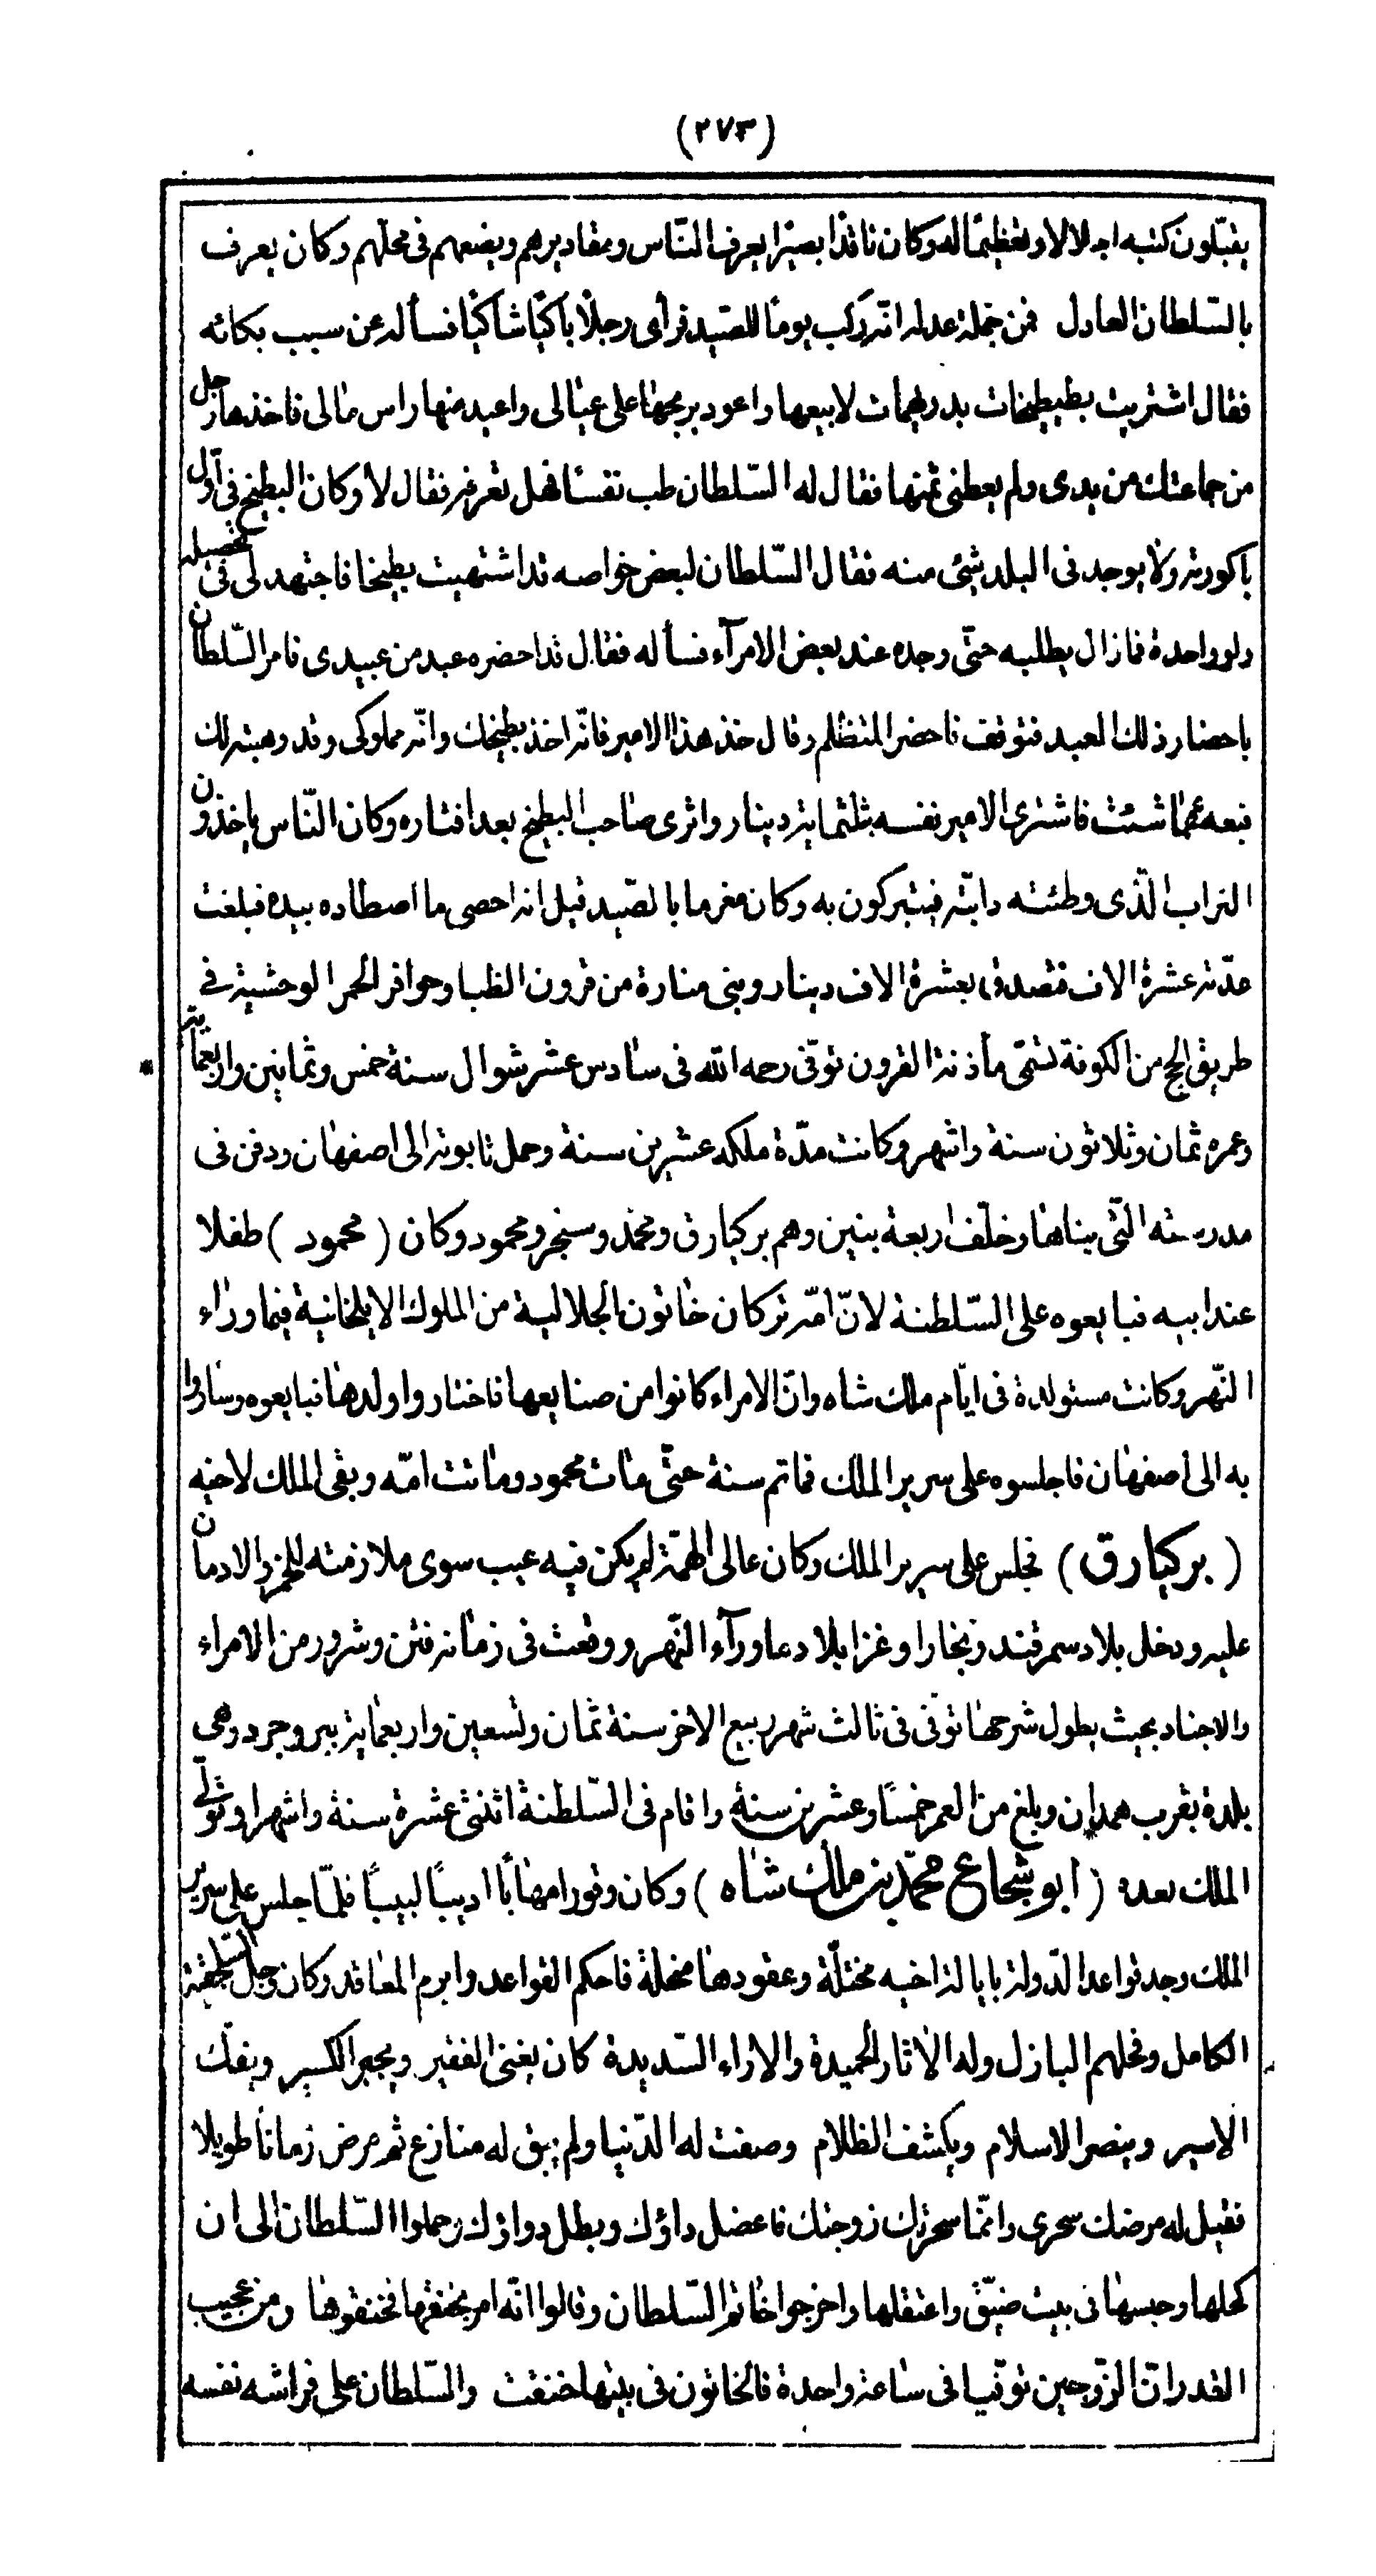 (٢٧٣)
يقبّلون كتبه اجلالا لا وتعظيمًا له وكان ناقدًا بصيرًا يعرف النّاس ومقاديرهم ويضعهم فى محلّهم وكان يعرف
بالسّلطان العادل فمن جملة عدله انّه ركب يومًا للصّيد فرأى رجلًا باكيًا شاكيًا فسأله عن سبب بكائه
فقال اشتريت بطيطيخات بدريهمات لابيعها واعود بربحها على عيالى واعيد منها راس مالى فاخذها رجل
من جماعتك من يدى ولم يعطنى ثمنها فقال له السّلطان طب نفسًا فهل تعرفه فقال لا وكان البطيخ فى اوّل
باكورته ولا يوجد فى البلد شئ منه فقال السّلطان لبعض خواصه قد اشتهيت بطيخا فاجتهد لى فى تحصيله
ولو واحدة فما زال يطلبه حتّى وجده عند بعض الامرآء فسأله فقال قد احضره عبد من عبيدى فامر السّلطان
باحضار ذلك العبد فتوقف فاحضر المتظلم وقال خذ هذا الامير فانّه اخذ بطيخك وانّه مملوكى وقد وهبته لك
فبعه بما شئت فاشترى الامير نفسه بثلثماية دينار واثرى صاحب البطيخ بعد افتقاره وكان النّاس ياخذون
التراب الّذى وطئته دابّته فيتبركون به وكان مغرما بالصّيد قيل انه احصى ما اصطاده بيده فبلغت
عدّته عشرة الاف فتصدق بعشرة الاف دينار وبنى منارة من قرون الظبا وحوافر الحمر الوحشية فى
طريق الحج من الكوفة تسمّى مأذنة القرون توفّى رحمه الله فى سادس عشر شوال سنة خمس وثمانين واربعماية
وعمره ثمان وثلاثون سنة واشهر وكانت مدّة ملكه عشرين سنة وحمل تابوته الى اصفهان ودفن فى
مدرسته الّتى بناها وخلّف اربعة بنين وهم بركيارق ومحمد وسنجر ومحمود وكان (محمود) طفلا
عند ابيه فبايعوه على السّلطنة لانّ امّه تركان خاتون الجلالية من الملوك الايلخانية فيما وراء
النّهر وكانت مستولدة فى ايّام ملك شاه وانّ الامراء كانوا من صنايعها فاختاروا ولدها فبايعوه وساروا
به الى اصفهان فاجلسوه على سرير الملك فما تم سنة حتّى مات محمود وماتت امّه وبقى الملك لاخيه
(بركيارق) فجلس على سرير الملك وكان عالى الهمّة لم يكن فيه عيب سوى ملازمته للخمر والادمان
عليه ودخل بلاد سمرقند وبخارا وغزا بلاد ماورآء النّهر ووقعت فى زمانه فتن وشرور من الامراء
والاجناد بحيث يطول شرحها توفّى فى ثالث شهر ربيع الاخر سنة ثمان وتسعين واربعماية ببروجرد وهى
بلدة بقرب همدان وبلغ من العمر خمسًا وعشرين سنة واقام فى السّلطنة اثنتى عشرة سنة واشهرا وتولّى
الملك بعده (ابو شجاع محمّد بن ملك شاه) وكان وقورا مهابًا اديبًا لبيبًا فلمّا جلس على سرير
الملك وجد قواعد الدّولة بايالة اخيه مختلّة وعقودها منحلة فاحكم القواعد وابرم المعاقد وكان رجل السلجقية
الكامل وفحلهم البازل وله الاثار الحميدة والاراء السّديدة كان يغنى الفقير ويجبر الكسير ويفك
الاسير وينصر الاسلام ويكشف الظلام وصفت له الدّنيا ولم يبق له منازع ثم مرض زمانا طويلا
فقيل له مرضك سحرى وانّما سحرتك زوجتك فاعضل داؤك وبطل دواؤك وحملوا السّلطان الى ان
كحلها وحبسها فى بيت ضيّق واعتقلها واخرجوا خاتم السّلطان وقالوا انّه امر بخنقها فخنقوها ومن عجيب
القدر انّ الزّوجين توفّيا فى ساعة واحدة فالخاتون فى بيتها خنقت والسّلطان على فراشه نفسه